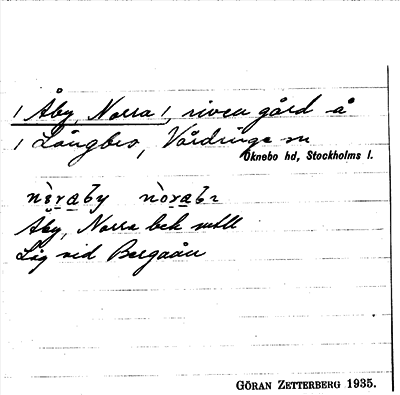 / Åby, Norra /, riven gård å
/ Långbro, Vårdinge sn
Öknebo hd, Stockholms l.
Åby, Norra bek
Låg vid Bergaån
GÖRAN ZETTERBERG 1935.